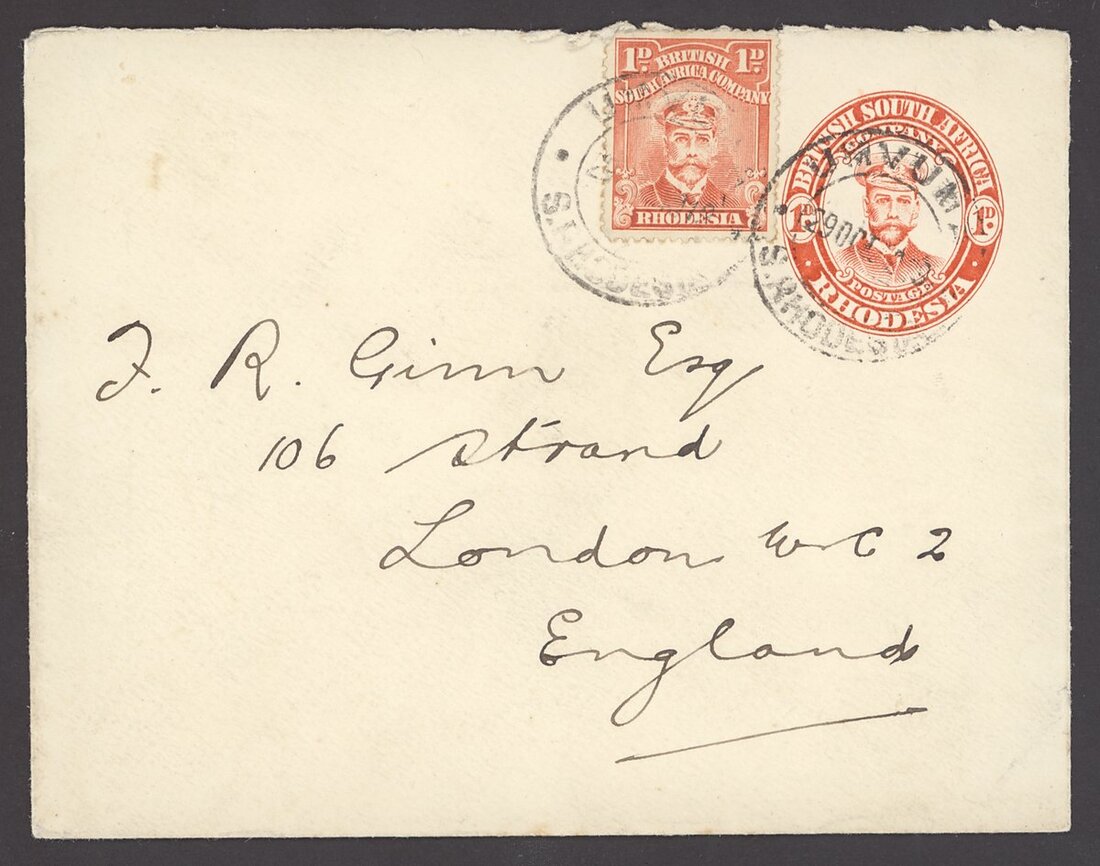 1D. 1D.
BRITISH
SOUTH AFRICA COMPANY
RHODESIA
S. RHODESIA
BRITISH SOUTH AFRICA
COMPANY
1D. 1D.
POSTAGE
RHODESIA
UMVUMA
29 OCT
S. RHODESIA
F. R. Ginn Esq
106 Strand
London W C 2
England